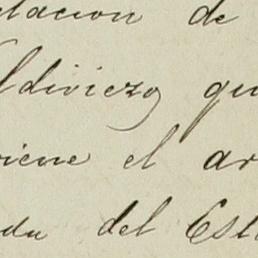 elacion de
ldiviezo qu
viene el ar
da del Est